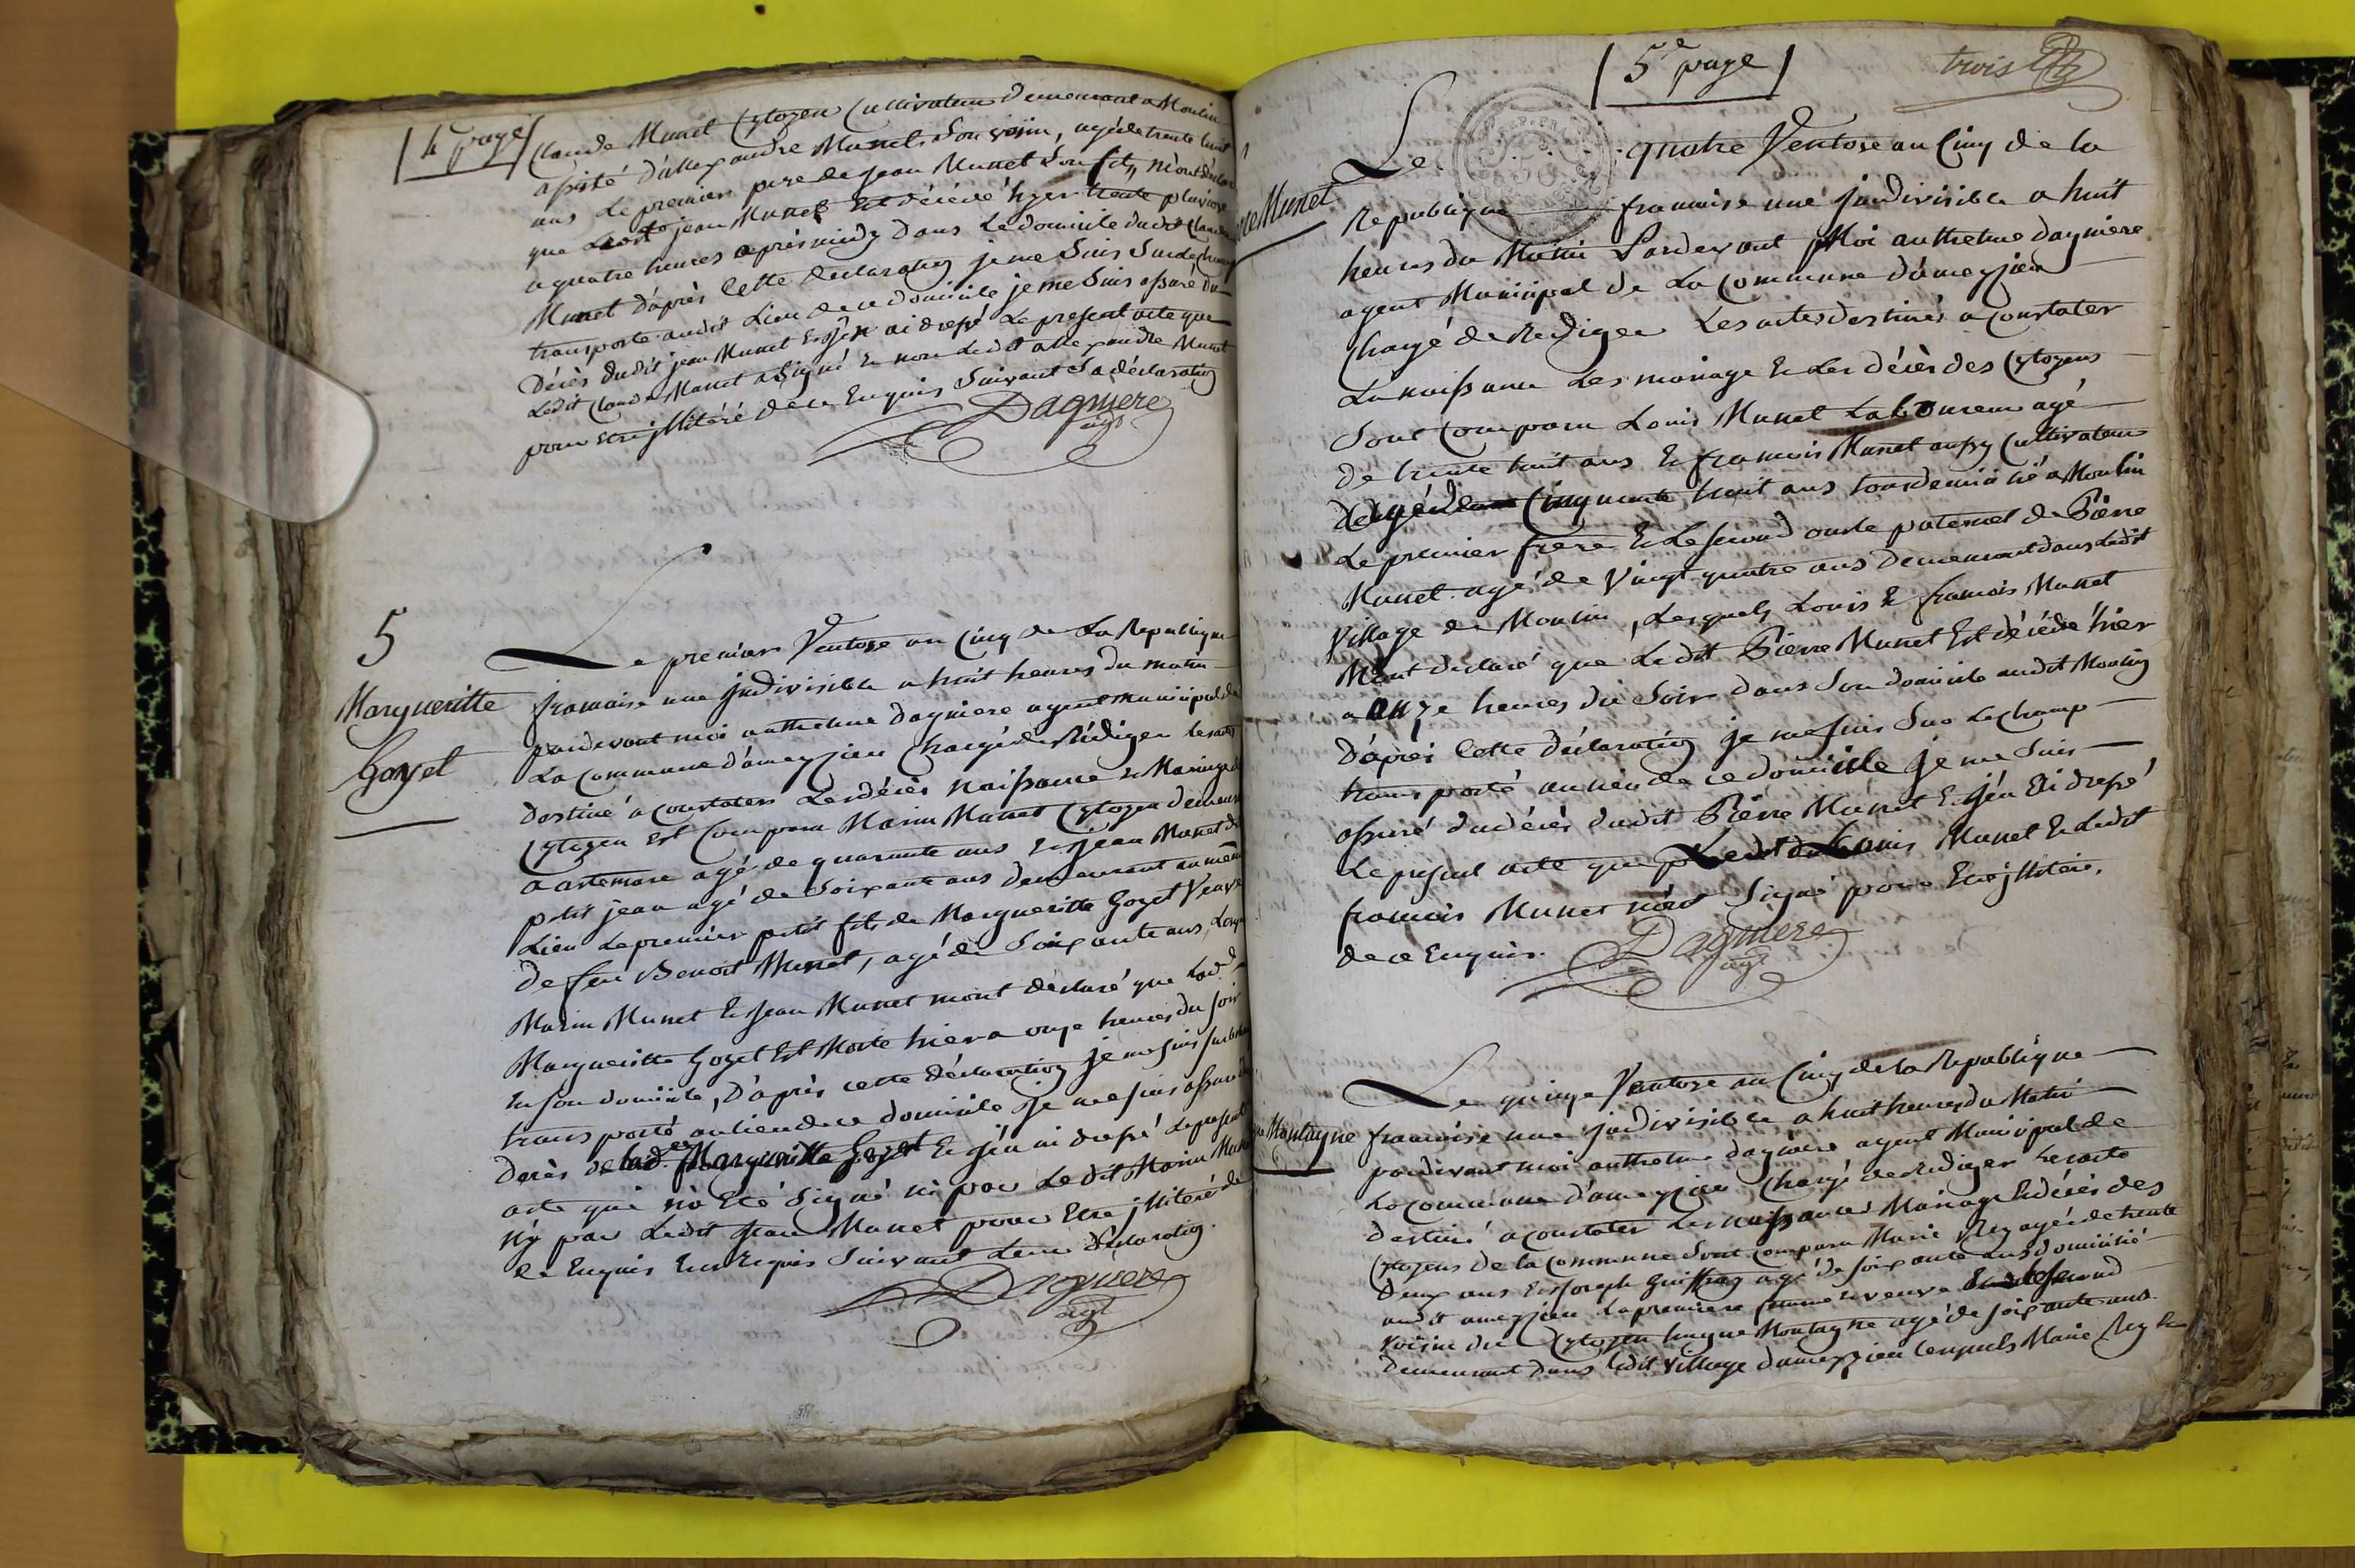 4e page
Claude Munet Cytoyen Cultivateur Demeurant a Moulin
assisté d'allexandre Munet Son voisin, agé de trente huit
ans Le premier pere de Jean Munet Son fils, m'ont déclaré
que Ledit jean Munet Est décédé hyer trente pluviose
a quatre heures après midy Dans Le domicile dudit Claude
Munet D'après Cette declaration je me Suis Sur le champ
transporté audit Lieu de ce domicile je me Suis assuré du
Décès dudit jean Munet Et j'en ai dressé Le present acte que
Ledit Claude Munet a Signé Et non Ledit allexandre Munet
pour être jllitéré de ce Enquis Suivant Sa déclaration
Dagniere
agt
5
Margueritte
Goyet
Le premier Ventose an Cinq de La Republique
francoise une jndivisible a huit heures du matin
pardevant moi anthelme dagniere agent municipal de
La Commune d'ameyzieu Chargé de Rédiger les actes
destiné a Constater Les décès Naissance & Mariage de
Cytoyen Est Comparu Marin Munet Cytoyen demeurant
a artemare agé de quarante ans Et jean Munet dit
petit jean agé de Soixante ans demeurant au même
Lieu Le premier petit fils de Margueritte Goyet Veuve
De feu Benoit Munet, agé de Soixante ans, Lesquels
Marin Munet & Jean Munet mont déclaré que Lad.
Margueritte Goyet Est Morte hier a onze heures du soir
En son domicile, D'après cette déclaration je me suis sur le champ
transporté au lieu de ce domicile, je me suis assuré du
Decès de lad. Margueritte Goyet & j'en ai dressé Le present
acte qui n'a Eté Signé ni par Ledit Marin Munet
n'y par Ledit Jean Munet pour Etre jllitéré de
ce Enquis Suivant Leur déclaration.
Dagniere
agt
5e page
trois
Munet
Le quatre Ventose an Cinq de la
Republique francoise une jndivisible a huit
heures du Matin Pardevant Moi anthelme dagniere
agent Municipal de La Commune d'ameyzieu
Chargé de Rediger Les actes destinés a Constater
La naissance Les mariage & Les décès des Cytoyens
Sont Comparu Louis Munet Laboureur agé
De trente huit ans & francois Munet aussy Cultivateur
agé de Cinquante huit ans tous domicilié a Moulin
Le premier frere & Le second oncle paternel de Pierre
Munet agé de Vingt quatre ans Demeurant dans Ledit
Village de Moulin, Lesquels Louis & francois Munet
M'ont declaré que Ledit Pierre Munet Est décédé hier
a onze heures du Soir dans Son domicile audit Moulin
D'après Cette déclaration je me suis Sur Le champ
transporté au lieu de ce domicile je me Suis
assuré du décès dudit Pierre Munet & j'en Ei dressé
Le present acte que Ledit Louis Munet & Ledit
francois Munet n'ont Signé pour Etre jllitéré.
de ce Enquis.
Dagniere
agt
Montagne
Le quinze Ventose an Cinq de la Republique
francoise une jndivisible a huit heures du Matin
pardevant moi anthelme dagniere agent Municipal de
La Commune d'ameyzieu Chargé de Rediger Les acte
destiné a constater Les naissances Mariage & décès des
Cytoyens de la Commune Sont Comparu Marie Rey agée de trente
Deux ans & Joseph Guiffray agé de soixante ans domicilié
audit ameyzieu La premiere femme & veuve & le second
voisin du Cytoyen hugue Montagne agé de soixante ans
Demeurant dans Ledit Village d'ameyzieu lesquels Marie Rey &